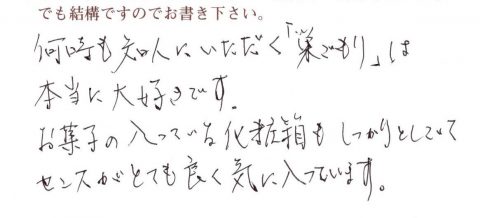 でも結構ですのでお書き下さい。
何時も知人にいただく「巣ごもり」は
本当に大好きです。
お菓子の入っている化粧箱もしっかりとしていて
センスがとても良く気に入っています。